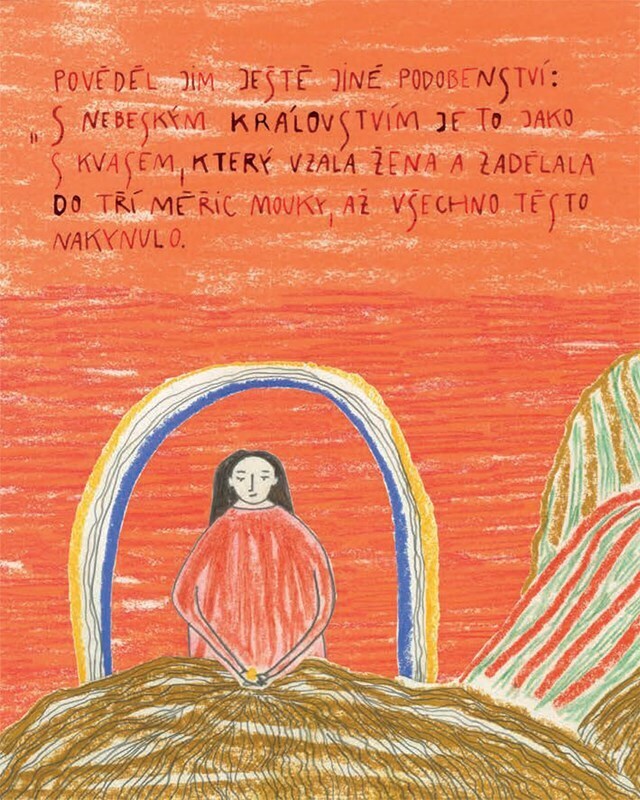 POVĚDĚL JIM JEŠTĚ JINÉ PODOBENSTVÍ:
„S NEBESKÝM KRÁLOVSTVÍM JE TO JAKO
S KVASEM, KTERÝ VZALA ŽENA A ZADĚLALA
DO TŘÍ MĚŘIC MOUKY, AŽ VŠECHNO TĚSTO
NAKYNULO.